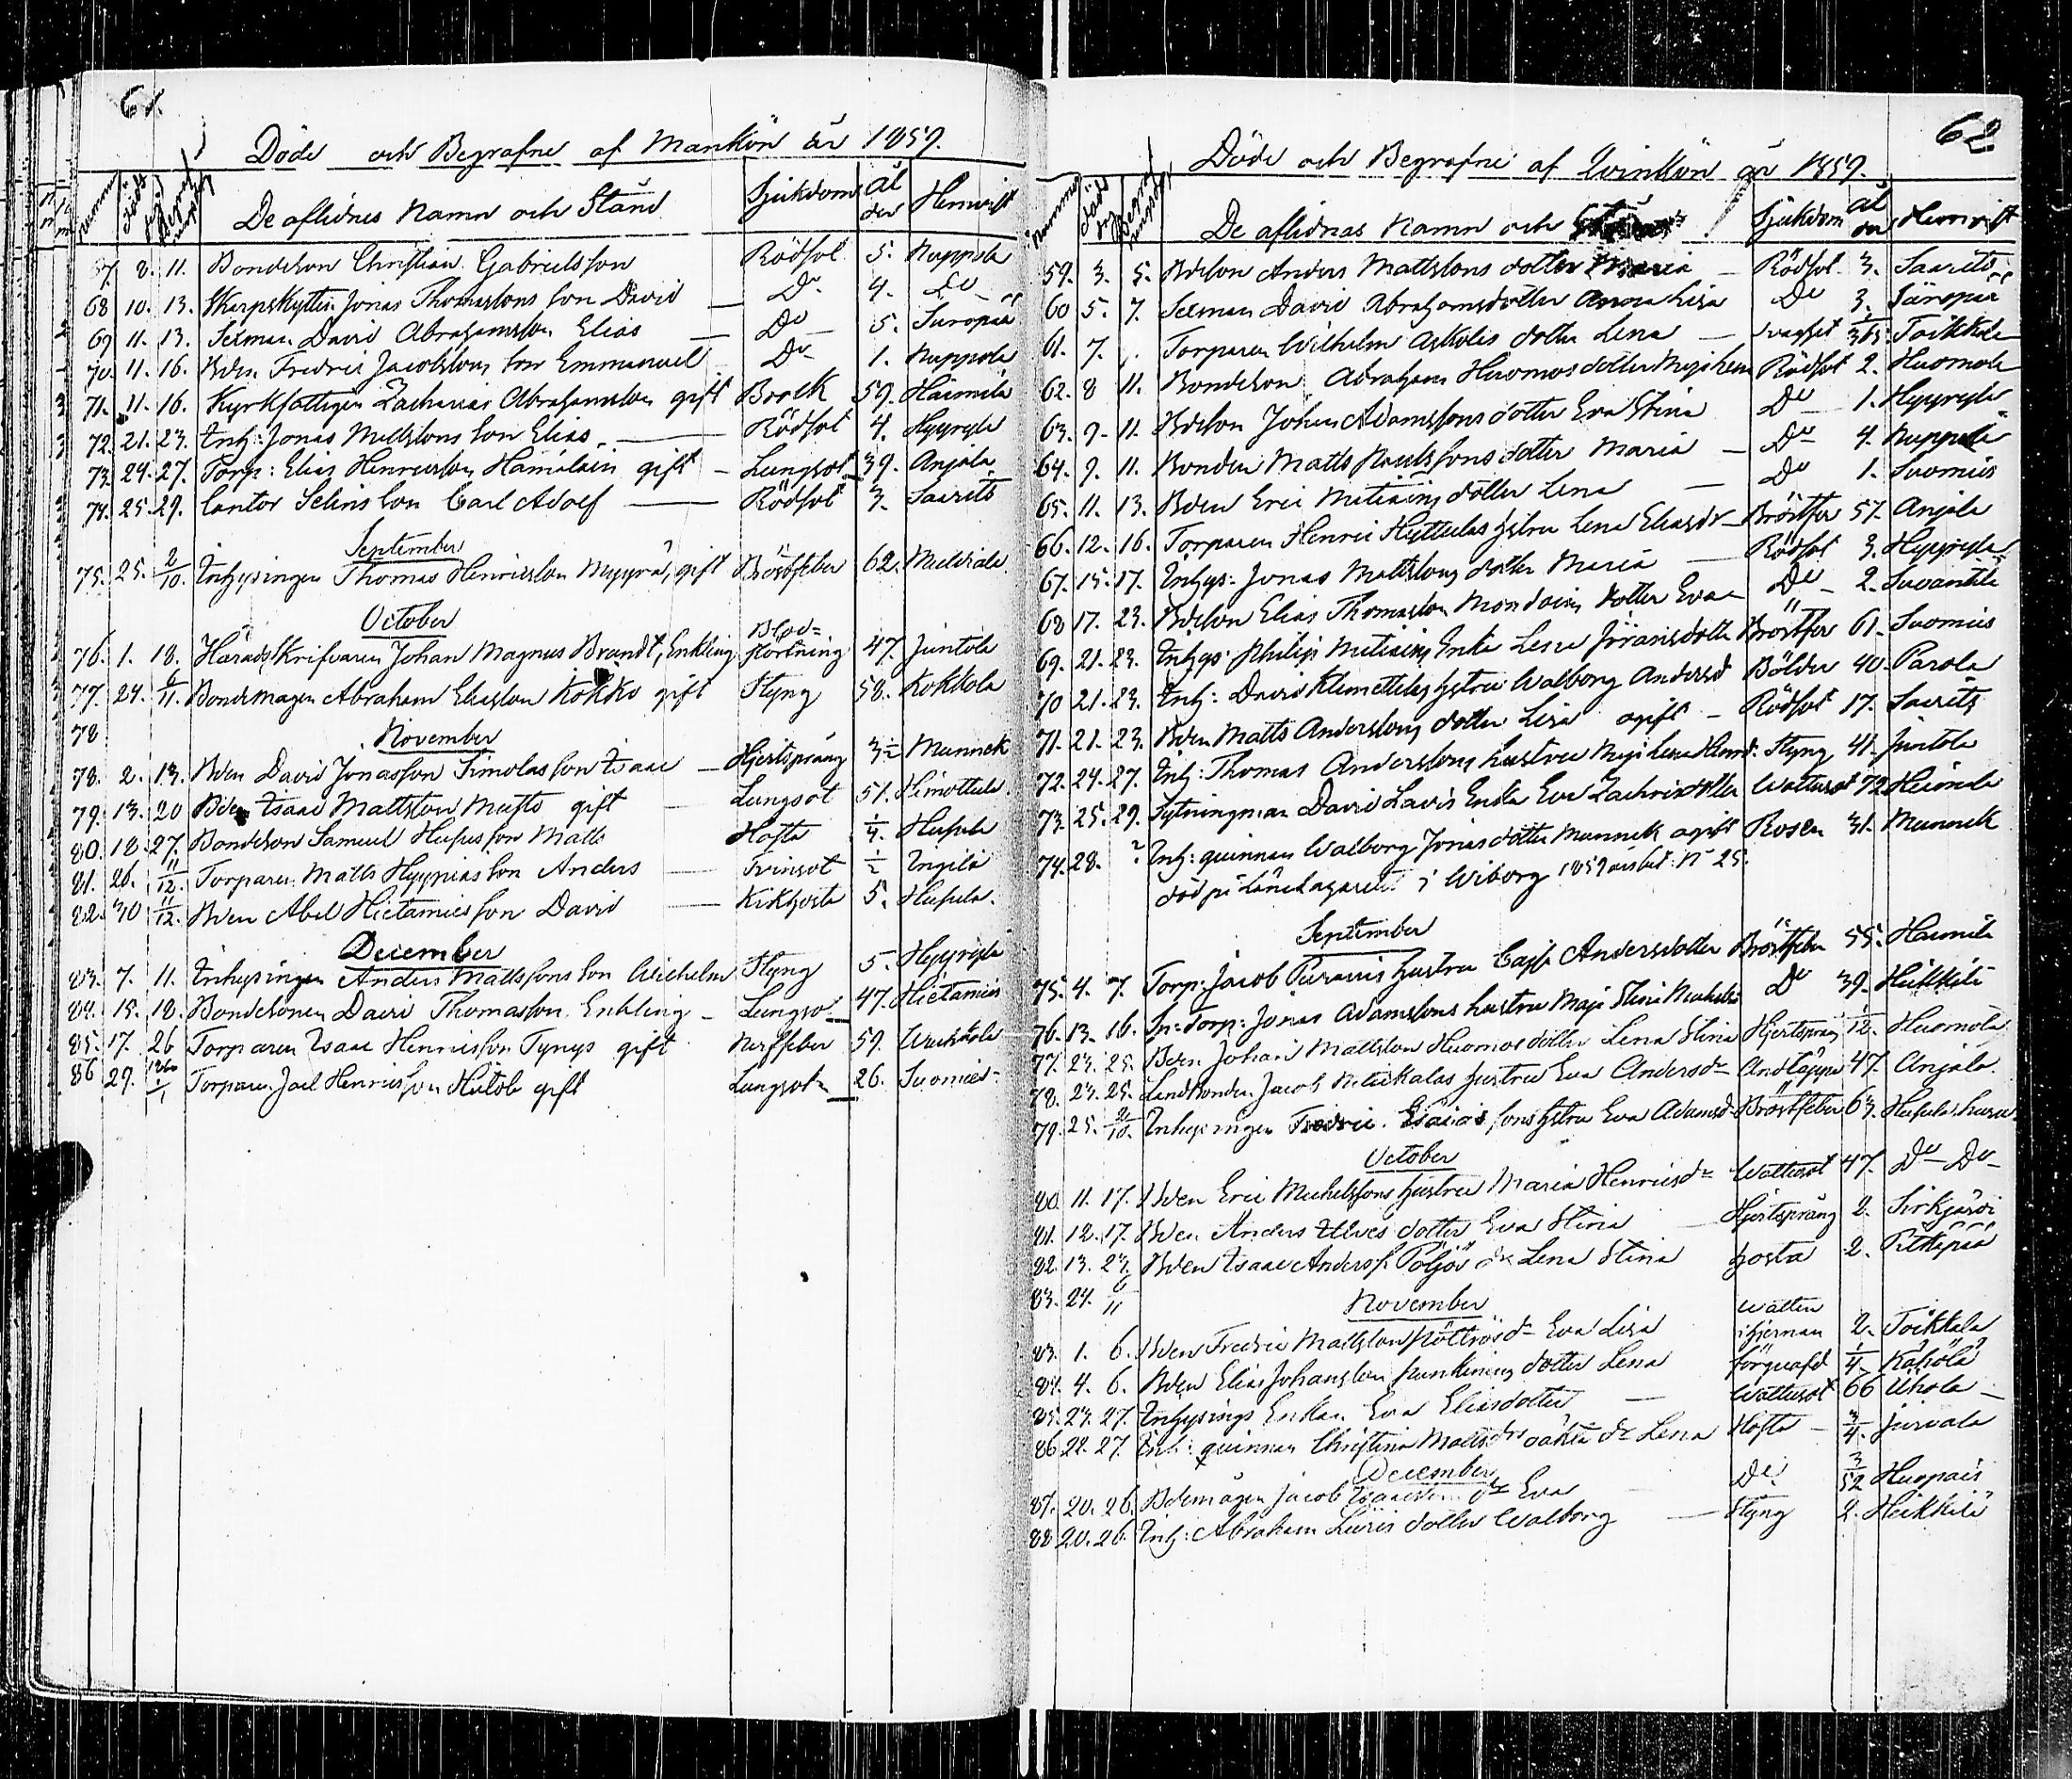 61.
Döde och Begrafne af Mankön år 1859.
nummer Döds dag Begrafnings dag De aflidnes Namn och Stånd Sjukdom Ål der Hemvist
67. 8. 11. Bondeson Christian Gabrielsson Rödsot 5. Nuppola
68 10. 13. Skarpskytten Jonas Thomassons son David — Do 4. Do
69 11. 13. Sexman David Abrahamsson Elias — Do 5. Suropää
70. 11. 16. Bden Fredric Jacobssons son Emmanuel Do 1. Nuppola
71. 11. 16. Kyrkfattigen Zacharias Abrahamsson gift Bråck 59. Haimila
72. 21. 23. Inh: Jonas Mattssons son Elias. — Rödsot 4. Hyyrylä
73. 24. 27. Torp: Elias Henricsson Hämäläin gift – Lungsot 39. Anjala
74. 25. 29. Cantor Selins son Carl Adolf — Rödsot 3. Saarits
September
75. 25. 2/10. Inhysingen Thomas Henricsson Myyrä, gift Bröstfeber 62.
October
76. 1. 18. Häradsskrifvaren Johan Magnus Brandt, Enkling Blod= störtning 47. Juntola
77. 24. 6/11. Bondemågen Abraham Eliasson Kokko gift Styng 58. Kokkola
78
November
78. 2. 13. Bden David Jonasson Simolas son Isaac — Hjertsprång 3½ Munnek
79. 13. 20 Bden Isaac Mattsson Musto gift — Lungsot 51. Himottula
80. 18. 27. Bondeson Samuel Hufus son Matts Hosta ¼. Hufula
81. 26. 11/12. Torparen Matts Hyypiäs son Anders — Tvinsot ½ Ingilä
82. 30 11/12. Bden Abel Hietamies son David — Kikhosta 5. Hufula.
December
83. 7. 11. Inhysingen Anders Mattssons son Wilhelm Styng 5. Hyyrylä
84. 15. 18. Bondesonen David Thomasson Enkling – Lungsot 47. Hietamies
85. 17. 26 Torparen Isaac Henricsson Tynys gift Nerffeber 59.
86 29. 1860 1/1 Torparen Joel Henricsson gift Lungsot 26. Suomies
62
Döde och Begrafne af Qvinkön år 1859.
Nummer Döds dag Begrafnings dag De aflidnas Namn och Sjukdom Ål der Hemvist
59. 3. 5. Bdeson Anders Mattssons dotter Maria — Rödsot. 3. Saarits
60 5. 7. Sexman David Abrahamsdotter Anna Lisa Do 3. Säropää
61. 7. . Torparen Wilhelm Askolis dotter Lena — svaghet 3/365 Toikkala
62. 8 11. Bondeson Abraham Huomos dotter Maja Lena Rödsot 2. Huomola
63. 9. 11. Bdeson Johan Adamssons dotter Eva Stina Do — 1. Hyyrylä
64. 9. 11. Bonden Matts Paulssons dotter Maria — Do 4. Nuppola
65. 11. 13. Bden Eric Matiains dotter Lena — Do 1. Suomies
66. 12. 16. Torparen Henric Hyttulas hstru Lena Eliasdr – Bröstfeber 57. Anjala
67. 15. 17. Inhys: Jonas Mattssons dotter Maria — Rödsot 3. Hyyrylä
68 17. 23. Bdeson Elias Thomasson Mondoins dotter Eva – Do – 2. Suvantila
69. 21. 23. Inhys: Philip Matiains Enka Lena Göransdotter Bröstfer 61. Suomies
70 21. 23. Inh: David Klemettilas hstru Walborg Andersd Bölder 40. Parola
71. 21. 23. Bden Matts Anderssons dotter Lisa ogift – Rödsot 17. Saarits
72. 24. 27. Inh: Thomas Anderssons hustru Maja Lena Henrd: Styng 41. Juntola
73. 25. 29. Sytningman David Lavis Enka Eva Zachrisdotter Wattusot 72. Heimola
74. 28. ? Inh: qvinnan Walborg Jonasdotter Munnek ogift Rosen 31. Munnek
död på Länelazarett i Wiborg 1859 No 25.
September
75. 4. 7. Torp: Jacob Purasis hustru Cajsa Andersdotter Bröstfeber 55. Haimila
76. 13. 16. Sn: Torp: Jonas Adamssons hustru Maja Stina Michelsd Do 39. Heikkilä
77. 23. 25. Bden Johan Mattsson Huomos dotter Lena Stina Hjertsprång /12. Huomola
78. 23. 25. Landbonden Jacob hustru Eva Andersdr Andtäppa 47. Anjala.
79. 25. 2/10. Inhysingen Fredric Esaiassons hstru Eva Adamsd. Bröstfeber 63. Hufula
October
80. 11. 17. Bden Eric Michelssons hustru Maria Henricsdr Wattusot 47. Do Do
81. 12. 17. Bden Anders Ulves dotter Eva Stina — Hjertsprång 2. Sirkjärvi
82. 13. 23. Bden Isaac Anderss. Pöljös dr Lena Stina hosta 2. Pitkäpää
83. 24. 6/11
November
83. 1. 6. Bden Fredric Mattsson dr Eva Lisa Watten i hjernan 2. Toikkala
84. 4. 6. Bden Elias Johansson Punkinins dotter Lena förqvafd ¼ Kähölä
85. 23. 27. Inhysings Enkan Eva Eliasdotter — Wattusot 66 Uhola —
86 22. 27. Inh: qvinnan Christina Mattsdrs oäkta dr Lena Hosta — ¾. Järvala
December
87. 20. 26. Bdemågen Jacob Isaacssons dr Eva Do. 3/52
88 20. 26. Inh: Abraham Luris dotter Walborg — Styng 2. Heikkilä